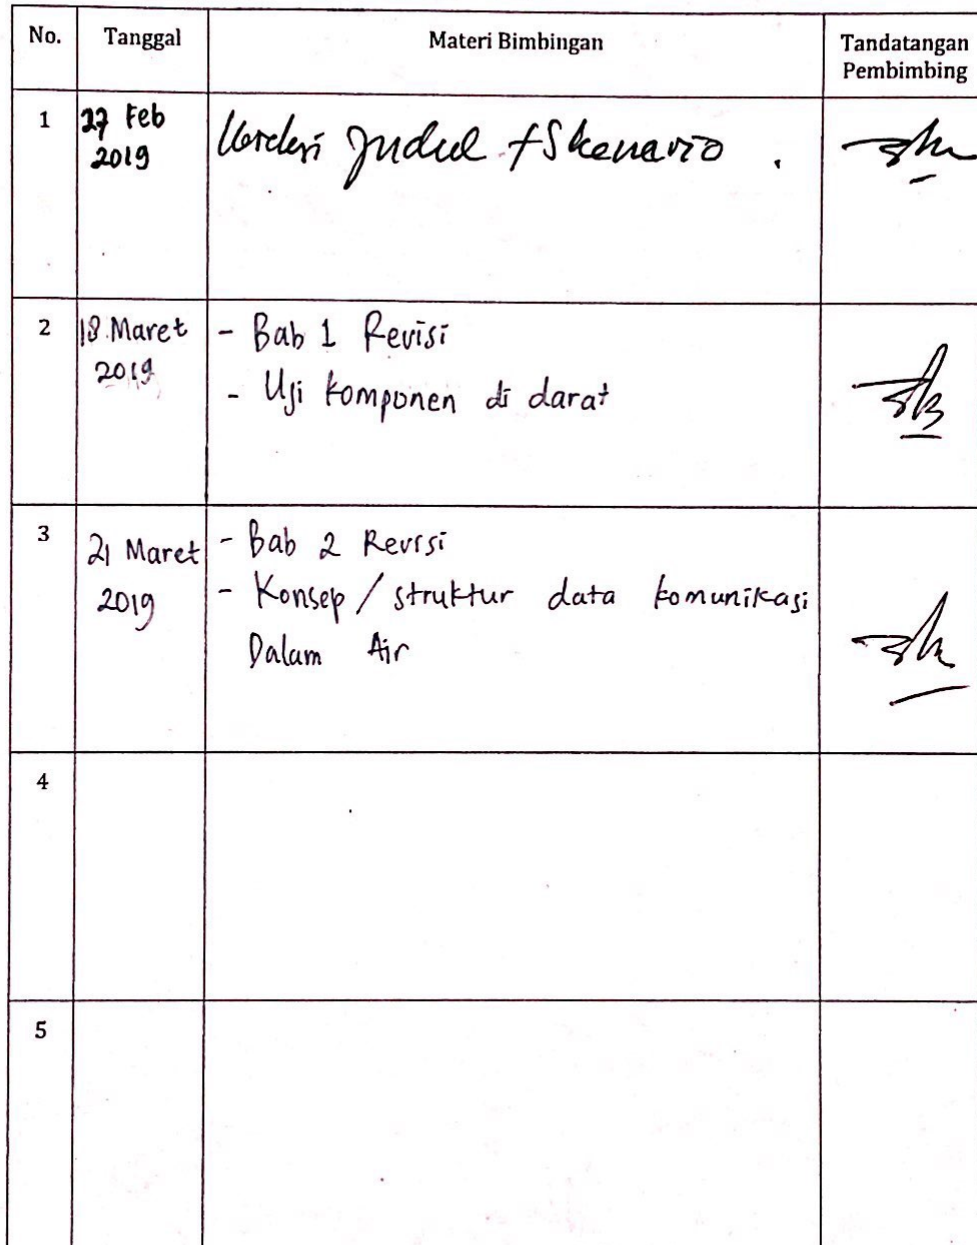 No. Tanggal Materi Bimbingan Tandatangan
Pembimbing
1 27 Feb Judul + Skenario .
2019
2 18 Maret - Bab 1 Revisi
2019 - Uji komponen di darat
3 21 Maret - Bab 2 Revisi
2019 - Konsep / struktur data komunikasi
Dalam Air
4
5